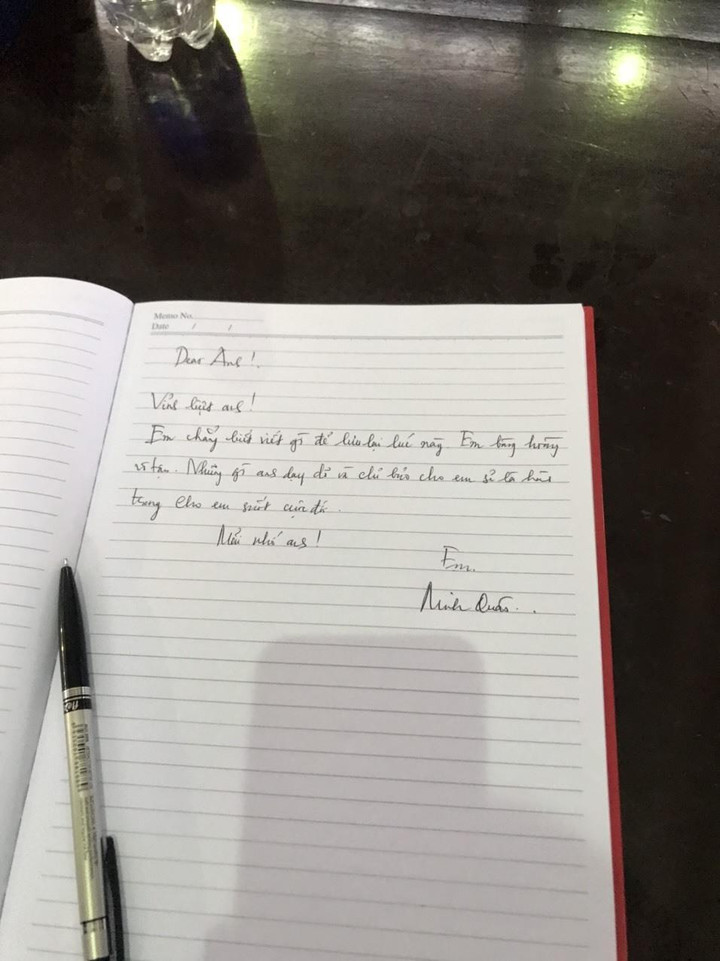 Memo No.
Date / /
Dear Anh !
Vĩnh biệt anh !
Em chẳng biết viết gì để lưu lại lúc này. Em
Những gì anh dạy dỗ và chỉ bảo cho em sẽ là
trang cho em suốt cuộc đời.
Mãi nhớ anh !
Em.
Minh Quân..